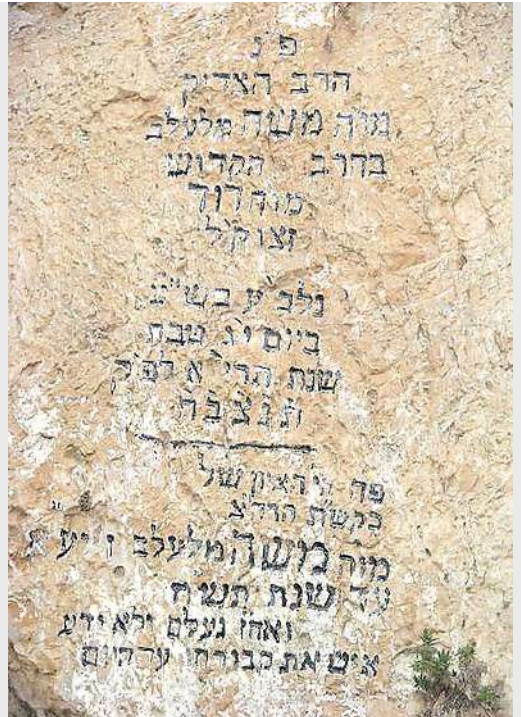 פ"נ
הרב הצדיק
מו"ה משה מלעלב
בהרב הקדוש
מוה דוד
זצוק"ל
נלב"ע בש"ט
ביום י"ג טבת
שנת תרי"א לפ"ק
ת נ צ ב ה
פה של
בקשת הרה"צ
מור משה מלעלב זיע"א
עד שנת תש"ח
ואהז נעלם ולא ידע
איש את קבורתו עד היום